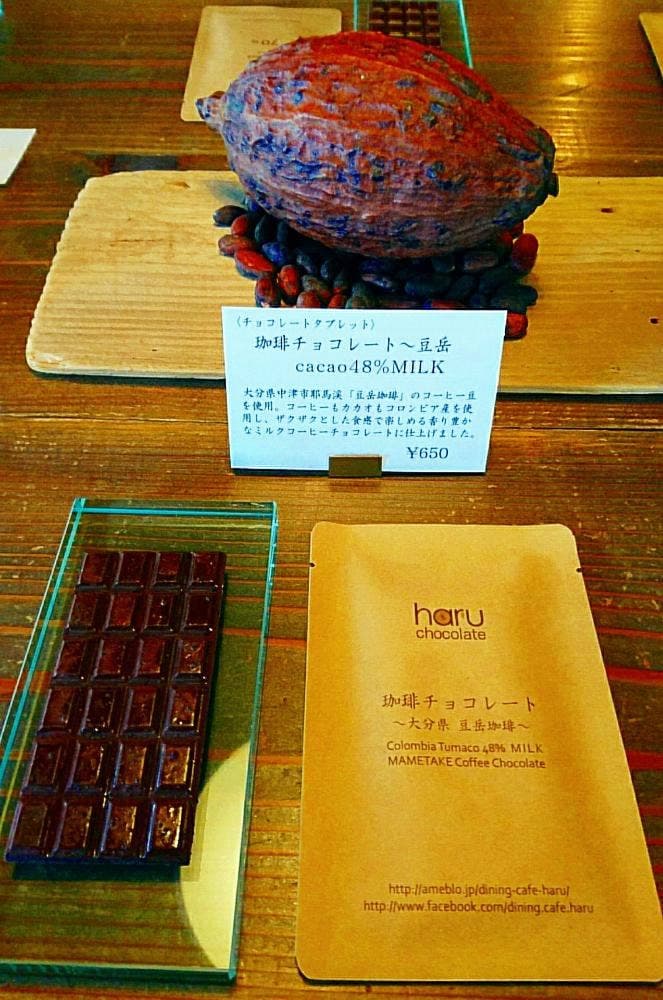 70%
（チョコレートタブレット）
珈琲チョコレート～豆岳
cacao48%MILK
大分県中津市耶馬溪「豆岳珈琲」のコーヒー豆
を使用。コーヒーもカカオもコロンビア産を使
用し、ザクザクとした食感で楽しめる香り豊か
なミルクコーヒーチョコレートに仕上げました。
¥650
haru
chocolate
珈琲チョコレート
～大分県 豆岳珈琲～
Colombia Tumaco 48% MILK
MAMETAKE Coffee Chocolate
http://ameblo.jp/dining-cafe-haru/
http://www.facebook.com/dining.cafe.haru